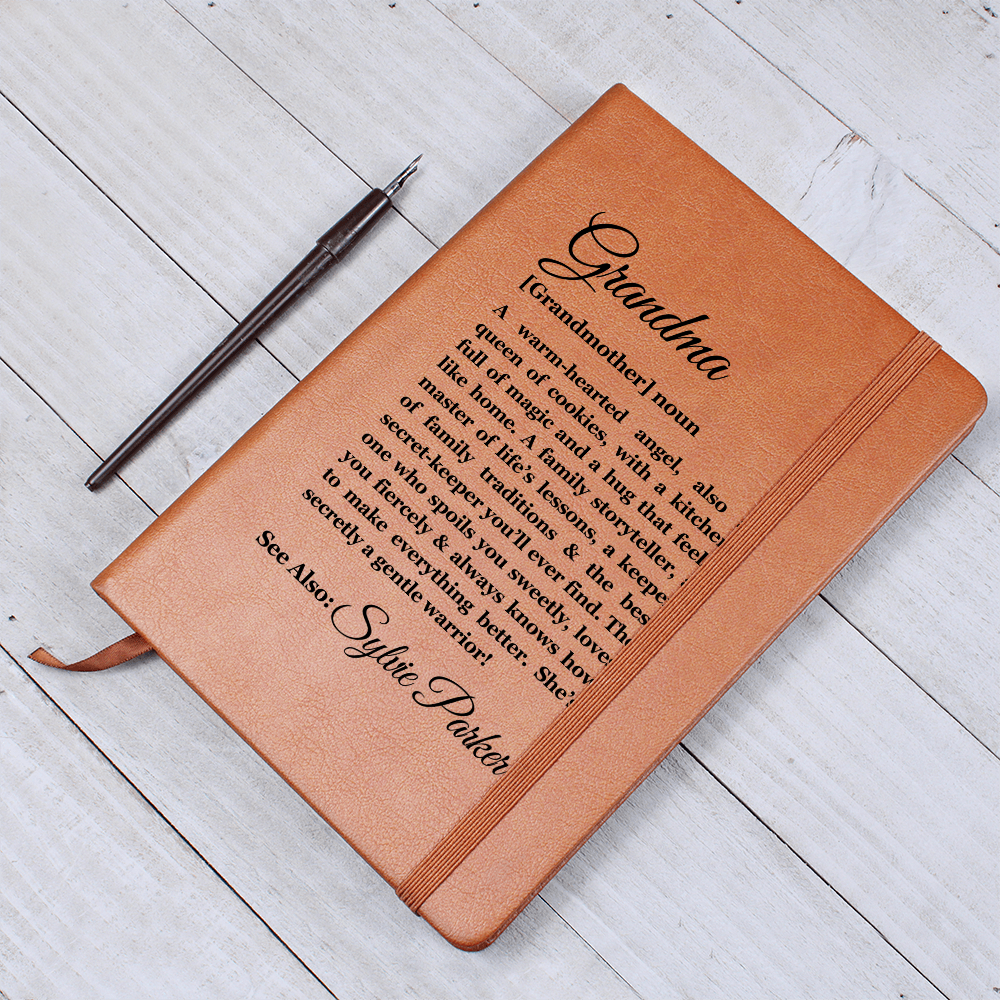 Grandma
[Grandmother] noun
A warm-hearted angel, also
queen of cookies, with a kitche
full of magic and a hug that feel
like home. A family storyteller,
master of life's lessons, a keepe
of family traditions & the bes
secret-keeper you'll ever find. Th
one who spoils you sweetly, love
you fiercely & always knows how
to make everything better. She'
secretly a gentle warrior!
See Also: Sylvie Parker